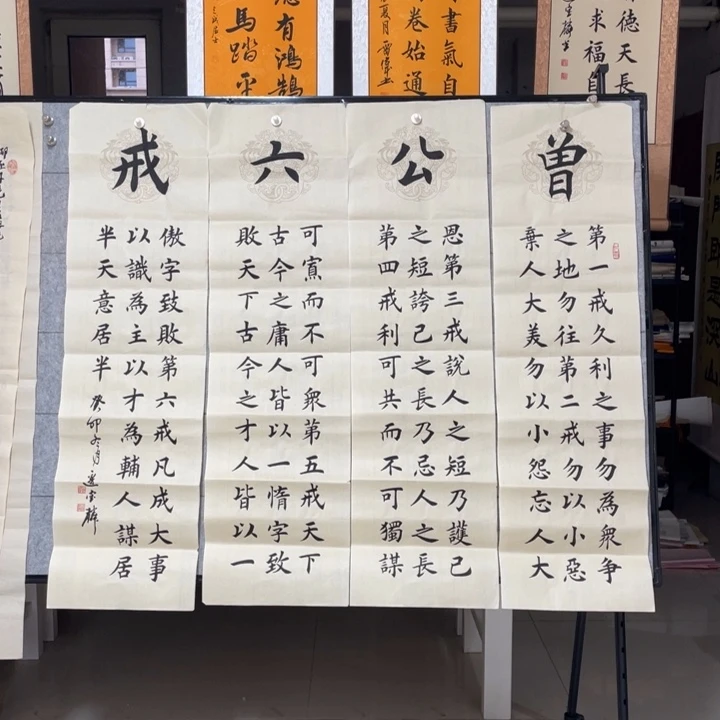 德天長
求福自
書氣自
卷始通
夏月
有鴻鵠
馬踏平
曾
第一戒久利之事勿為衆争
之地勿往第二戒勿以小惡
棄人大美勿以小怨忘人大
公
恩第三戒說人之短乃護己
之短誇己之長乃忌人之長
第四戒利可共而不可獨謀
六
可寡而不可衆第五戒天下
古今之庸人皆以一惰字致
敗天下古今之才人皆以一
戒
傲字致敗第六戒凡成大事
以識為主以才為輔人謀居
半天意居半
癸卯冬月